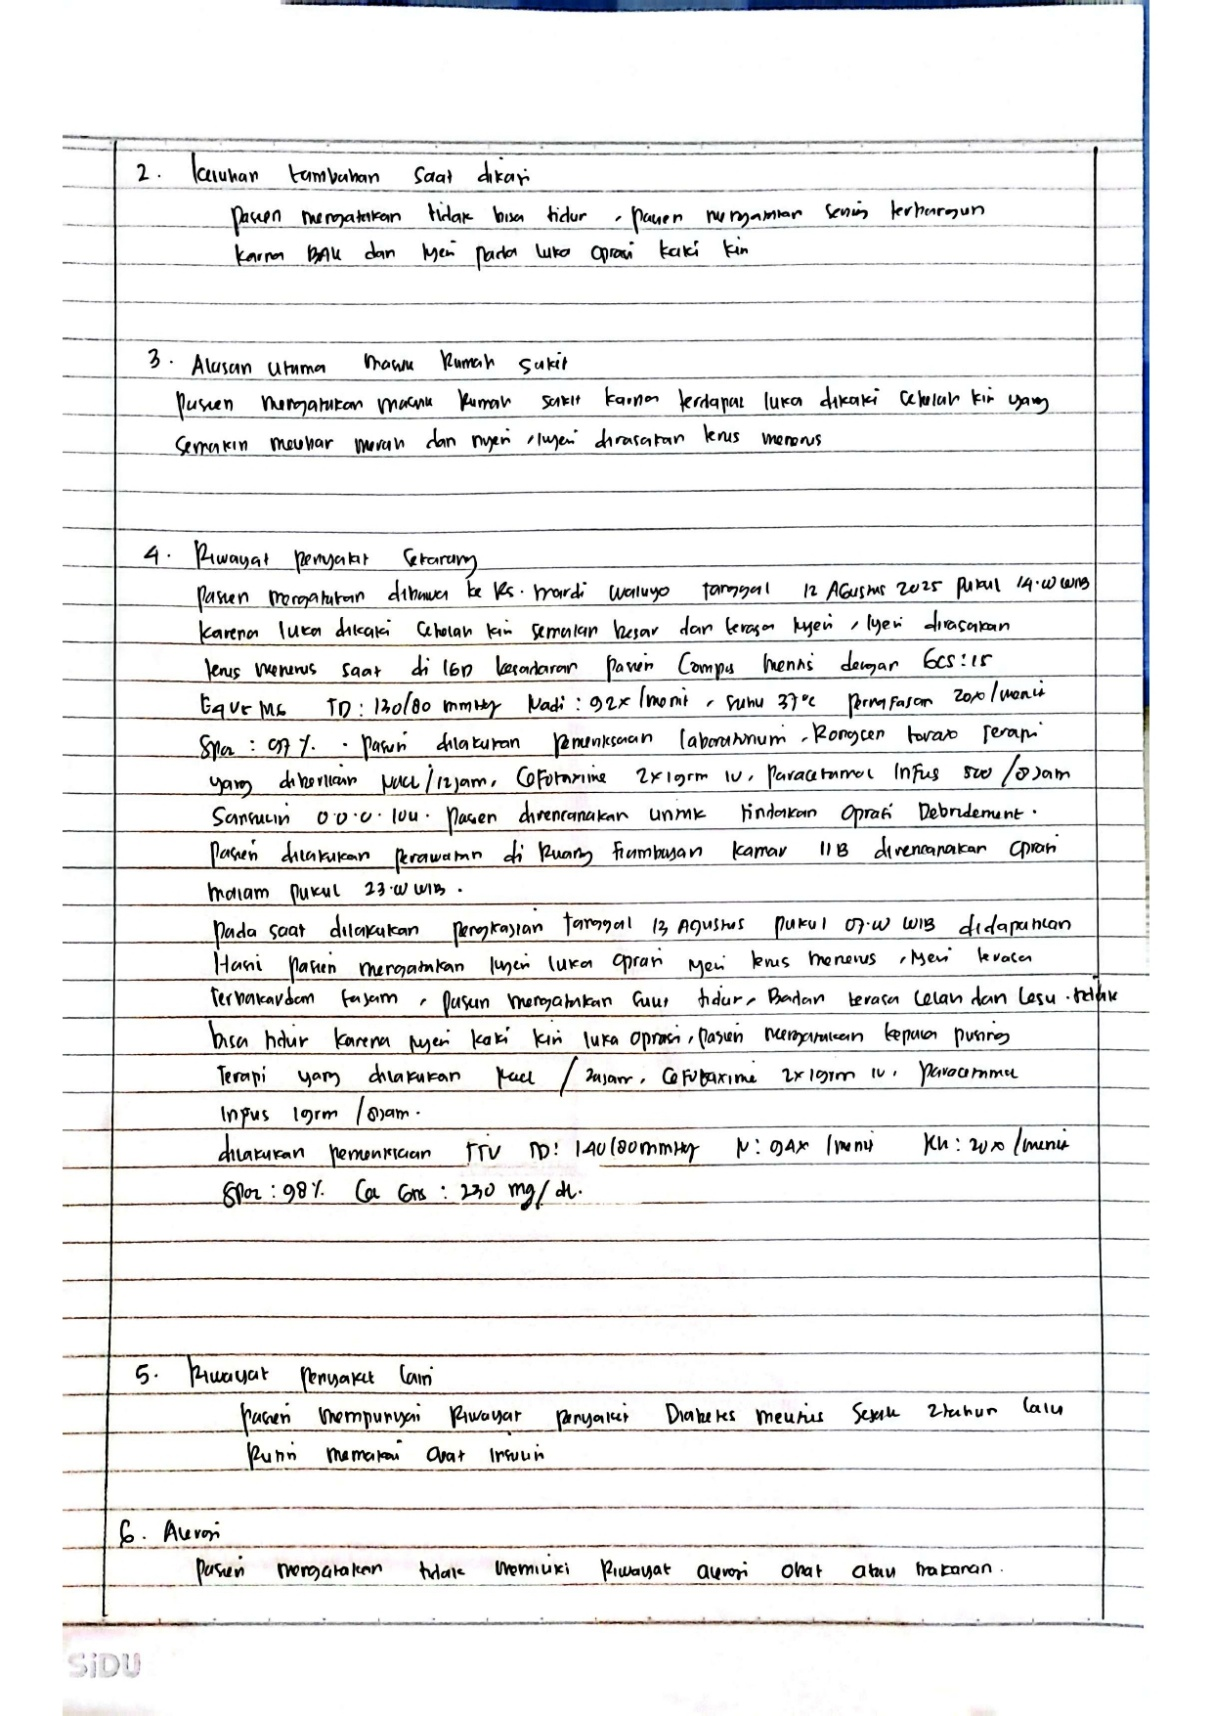 2. Keluhan tambahan saat dikaji
Pasien mengatakan tidak bisa tidur, pasien mengatakan sering terbangun
karna BAK dan nyeri pada luka oprasi kaki kiri
3. Alasan utama masuk Rumah sakit
Pasien mengatakan masuk Rumah sakit karna terdapat luka dikaki sebelah kiri yang
semakin melebar merah dan nyeri, nyeri dirasakan terus menerus
4. Riwayat penyakit sekarang
Pasien mengatakan dibawa ke Rs. Mardi Waluyo tanggal 12 Agustus 2025 pukul 14.00 WIB
karena luka dikaki sebelah kiri semakin besar dan terasa nyeri, nyeri dirasakan
terus menerus saat di IGD kesadaran pasien Compos Mentis dengan GCS : 15
TD : 130/80 mmHg Nadi : 92x/menit, suhu 37°c pernafasan 20x/menit
Spo2 : 97%. Pasien dilakukan pemeriksaan laboratorium, Rongsen torax Terapi
yang diberikan Nacl /12jam, Cefotaxime 2x1grm IV, Paracetamol Infus 500 /8jam
Sansulin 0.0.0.10u. Pasien direncanakan untuk tindakan Oprasi Debridement.
Pasien dilakukan perawatan di Ruang kamar 11B direncanakan oprasi
malam pukul 23.00 WIB.
Pada saat dilakukan pengkajian tanggal 13 Agustus pukul 07.00 WIB didapankan
Hasil pasien mengatakan nyeri luka oprasi nyeri terus menerus, nyeri terasa
terbakar dan tajam, pasien mengatakan sulit tidur, Badan terasa lelah dan Lesu. tidak
bisa tidur karena nyeri kaki kiri luka oprasi, pasien mengatakan kepala pusing
Terapi yang dilakukan Nacl / jam, Cefotaxime 2x1grm IV, paracetamol
Infus 1grm /8jam.
dilakukan pemeriksaan TTV TD : 140/80mmHg N : 94x /menit RR : 20x/menit
Spo2 : 98% : 230 mg/dl.
5. Riwayat Penyakit lain
Pasien mempunyai Riwayat penyakit Diabetes melitus Sejak 2tahun lalu
Rutin memakai obat insulin
6. Alergi
Pasien mengatakan tidak memiliki Riwayat alergi obat atau makanan.
SiDU